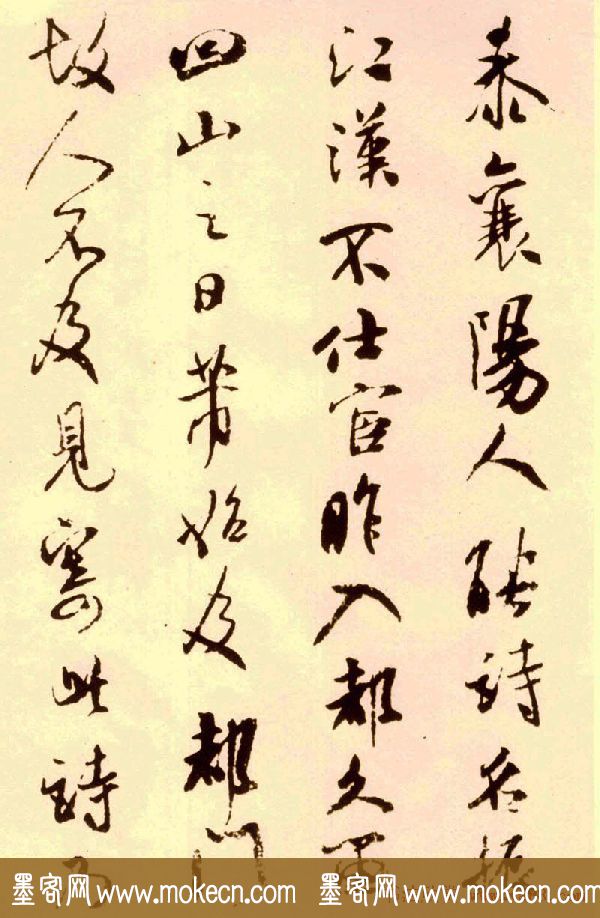 泰襄陽人能詩名振
江漢不仕宦昨入都久留
回山之日芾始及都門
故人不及見寄此詩乃
墨客网 www.mokecn.com 墨客网 www.mokecn.com